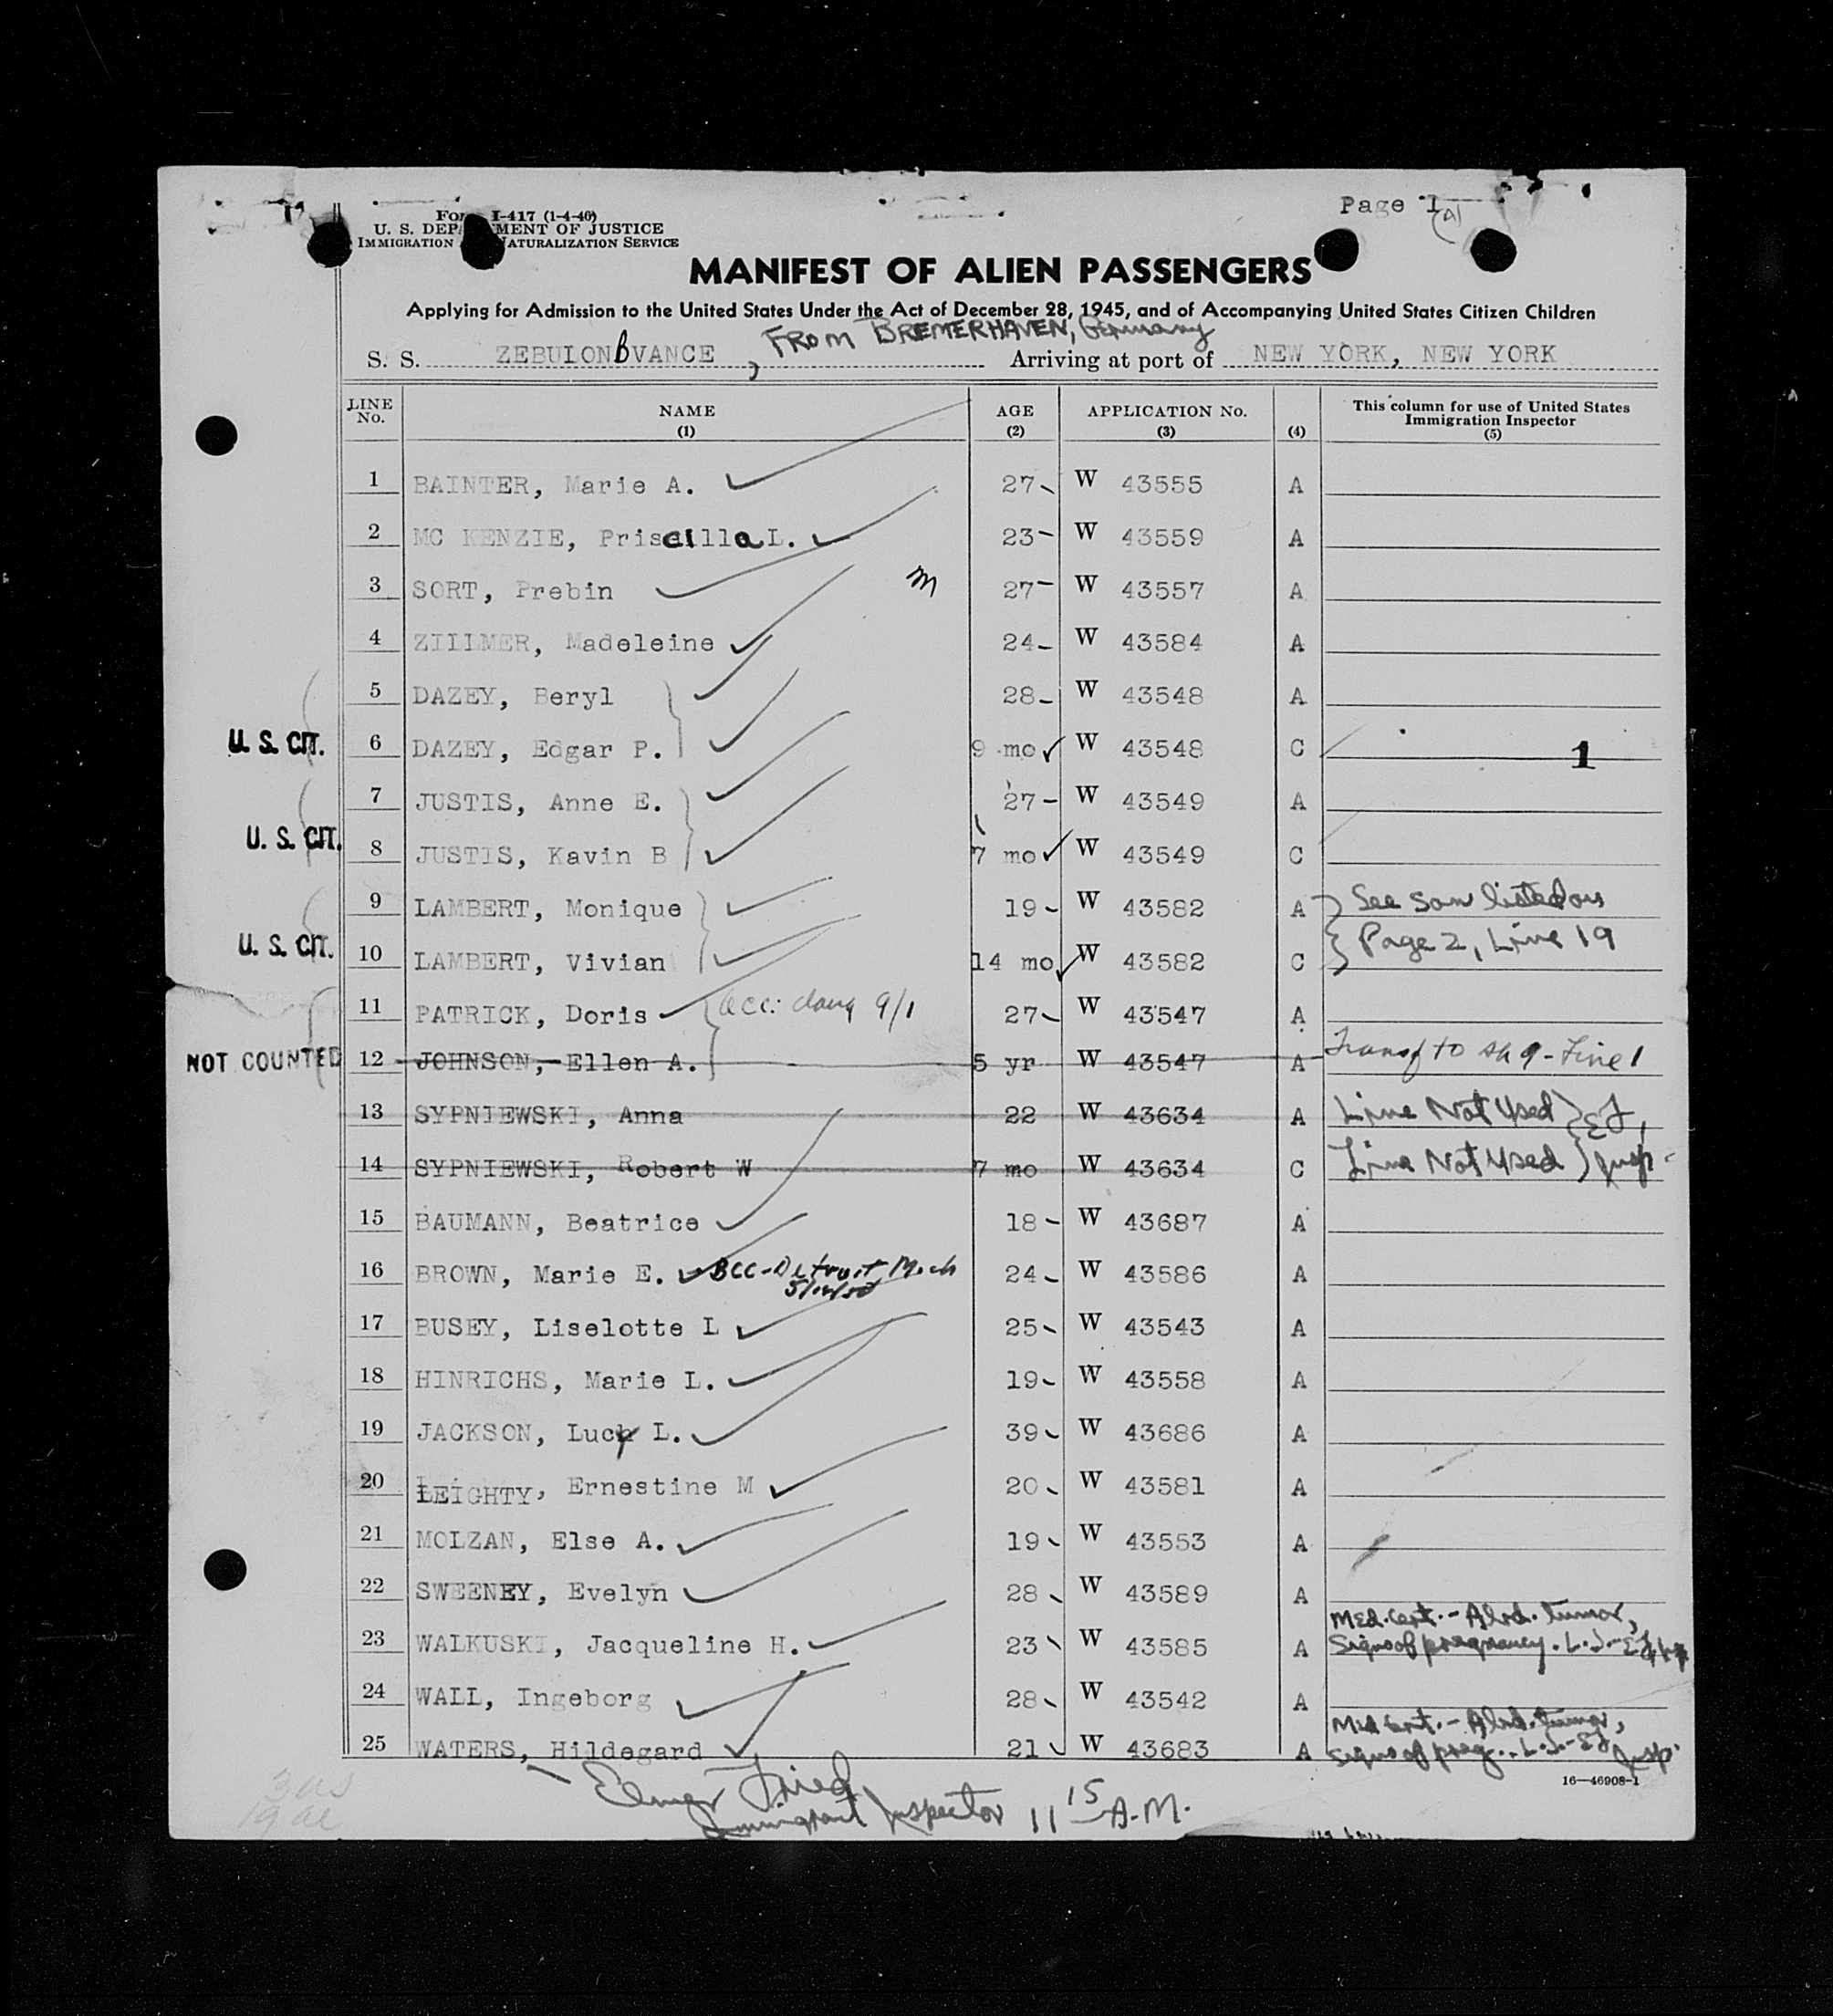 Page 1
(a)
Form I-417 (1-4-46)
U. S. DEPARTMENT OF JUSTICE
IMMIGRATION NATURALIZATION SERVICE
MANIFEST OF ALIEN PASSENGERS
Applying for Admission to the United States Under the Act of December 28, 1945, and of Accompanying United States Citizen Children
S. S. ZEBULON B VANCE, FROM BREMERHAVEN, Germany Arriving at port of NEW YORK, NEW YORK
LINE No. NAME (1) AGE (2) APPLICATION No. (3) (4) This column for use of United States Immigration Inspector (5)
1 BAINTER, Marie A. 27 W 43555 A
2 MC KENZIE, Priscilla L. 23 W 43559 A
3 SORT, Prebin M 27 W 43557 A
4 ZILLMER, Madeleine 24 W 43584 A
5 DAZEY, Beryl 28 W 43548 A
U. S. CIT. 6 DAZEY, Edgar P. 9 mo W 43548 C 1
7 JUSTIS, Anne E. 27 W 43549 A
U. S. CIT. 8 JUSTIS, Kavin B 7 mo W 43549 C
9 LAMBERT, Monique 19 W 43582 A See son listed on
U. S. CIT. 10 LAMBERT, Vivian 14 mo W 43582 C Page 2, Line 19
11 PATRICK, Doris acc. daug 9/1 27 W 43547 A
NOT COUNTED 12 JOHNSON, Ellen A. 5 yr W 43547 A Transf to sh 9 - Line 1
13 SYPNIEWSKI, Anna 22 W 43634 A Line Not Used EF,
14 SYPNIEWSKI, Robert W 7 mo W 43634 C Line Not Used Insp.
15 BAUMANN, Beatrice 18 W 43687 A
16 BROWN, Marie E. BCC - Detroit Mich 24 W 43586 A
17 BUSEY, Liselotte L 25 W 43543 A
18 HINRICHS, Marie L. 19 W 43558 A
19 JACKSON, Lucy L. 39 W 43686 A
20 LEIGHTY, Ernestine M 20 W 43581 A
21 MOLZAN, Else A. 19 W 43553 A
22 SWEENEY, Evelyn 28 W 43589 A
Med. Cert. - Abd. tumor,
23 WALKUSKI, Jacqueline H. 23 W 43585 A Signs of pregnancy.
24 WALL, Ingeborg 28 W 43542 A
Med Cert. - Abd. tumor,
25 WATERS, Hildegard 21 W 43683 A Signs of preg. Insp.
16—46908-1
Elmer Fried
Immigrant Inspector 11 15 A.M.